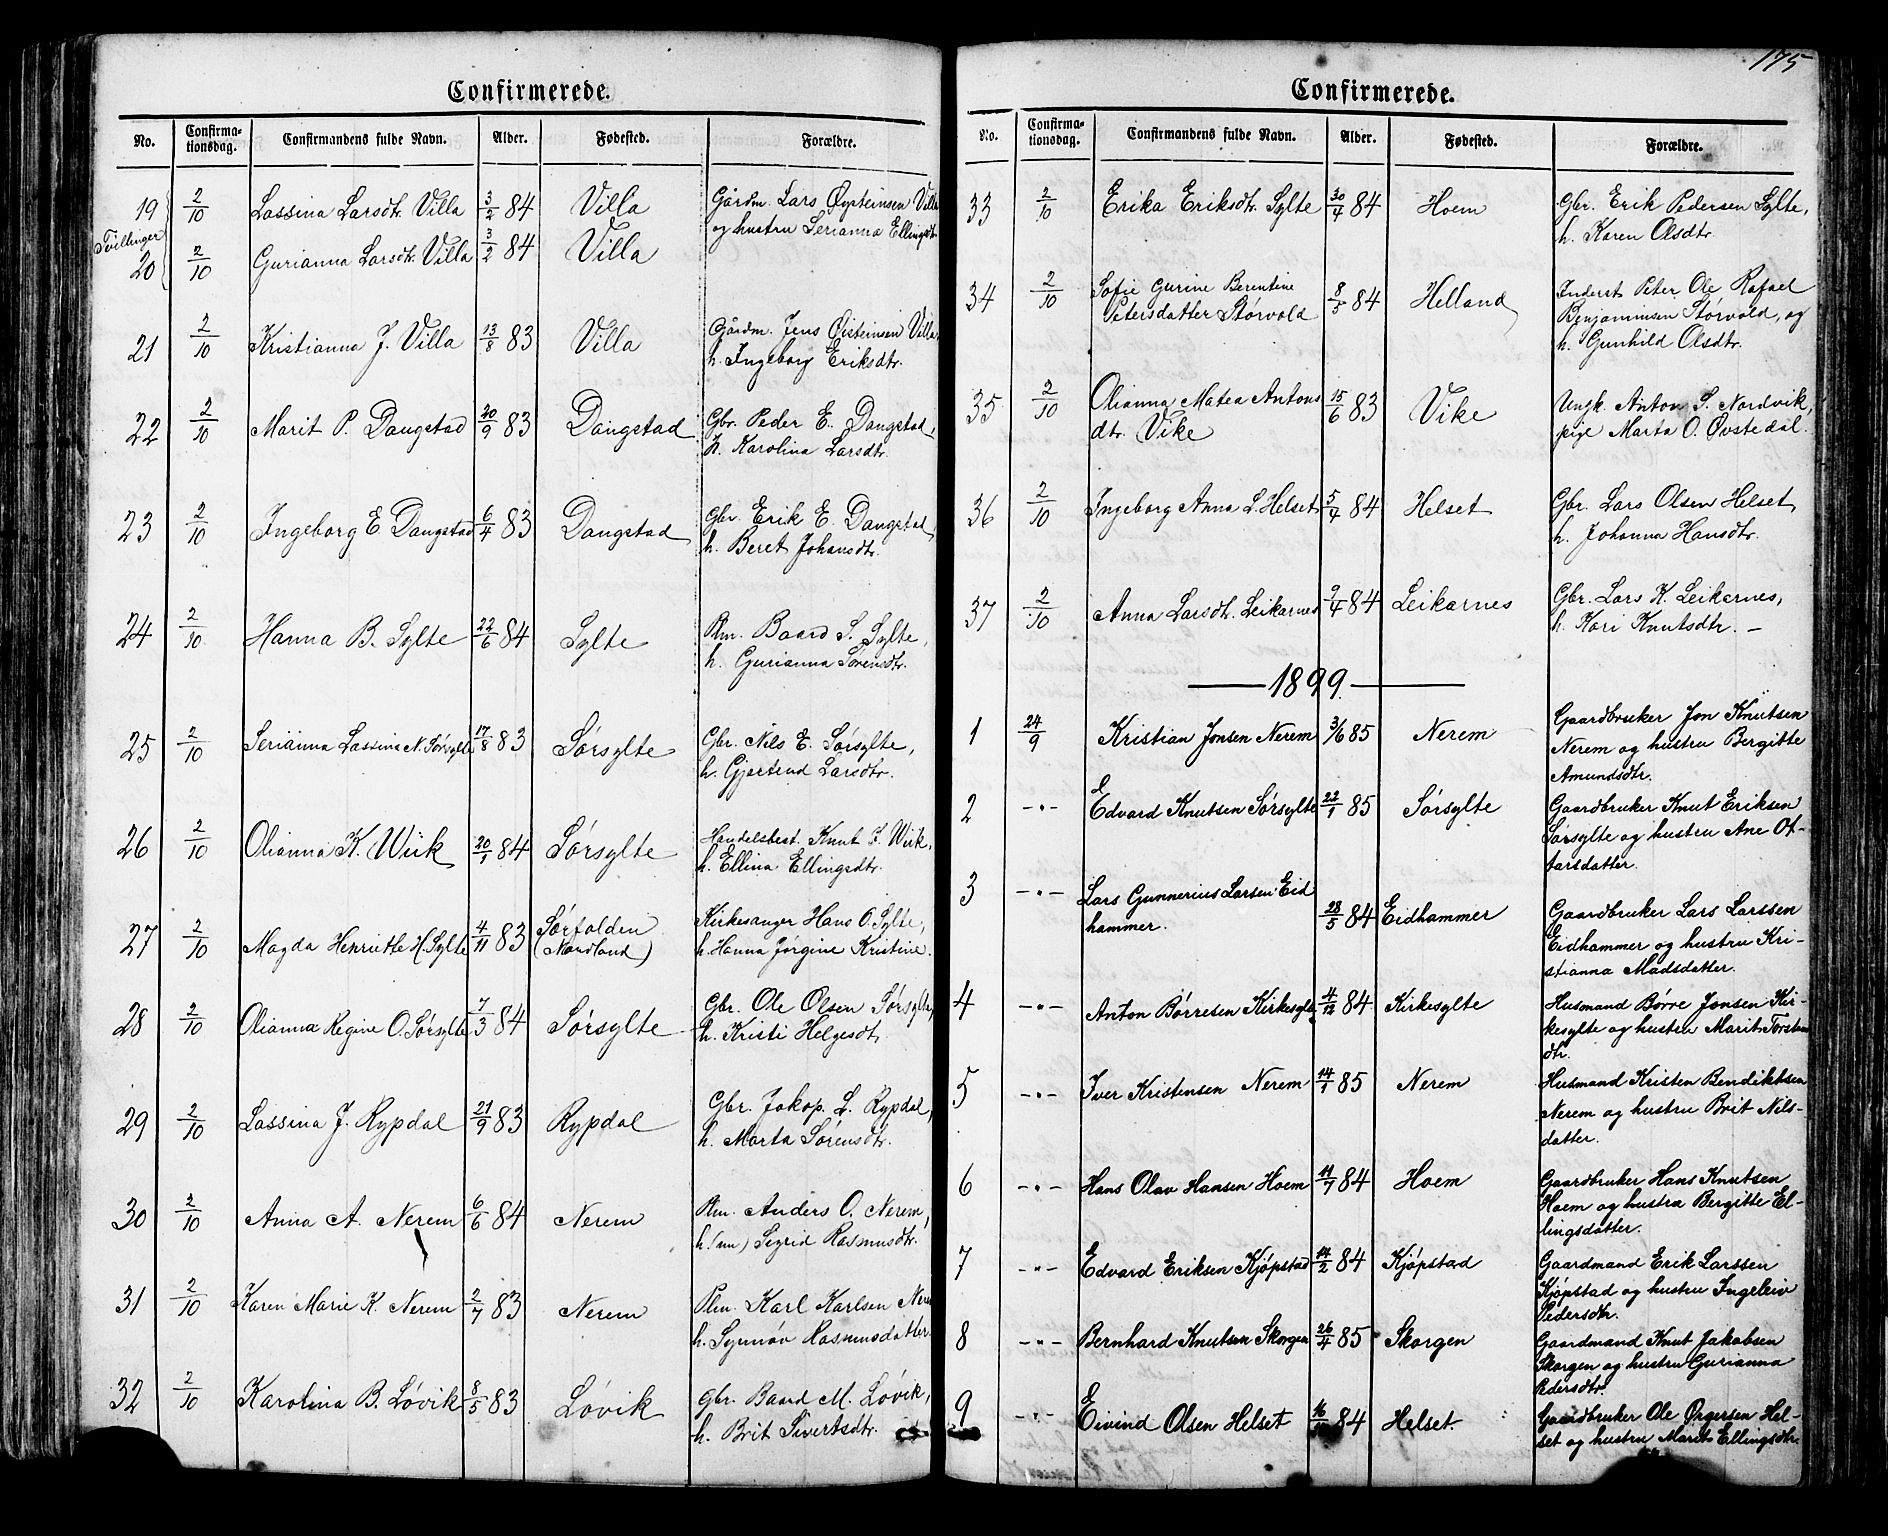 Confirmerede.
No. Confirma-tionsdag. Confirmandens fulde Navn. Alder. Fødested. Forældre.
Tvillinger
19 2/10 Lassina Larsdtr. Villa 3/2 84 Villa Gårdm. Lars Øysteinsen Villa
og hustru Serianna Ellingsdtr.
20 2/10 Gurianna Larsdtr. Villa 3/2 84 Villa
21 2/10 Kristianna J. Villa 13/8 83 Villa Gårdm. Jens Øisteinsen Villa,
h. Ingeborg Eriksdtr.
22 2/10 Marit P. Dangstad 20/9 83 Dangstad Gbr. Peder E. Dangstad,
h. Karolina Larsdtr.
23 2/10 Ingeborg E. Dangstad 6/4 83 Dangstad Gbr. Erik E. Dangstad,
h. Beret Johansdtr.
24 2/10 Hanna B. Sylte 22/6 84 Sylte Plm. Baard S. Sylte,
h. Gurianna Sørensdtr.
25 2/10 Serianna Lassina N. Sørsylte 17/8 83 Sørsylte Gbr. Nils E. Sørsylte,
h. Gjertrud Larsdtr.
26 2/10 Olianna K. Wiik 20/1 84 Sørsylte Handelsbest. Knut J. Wiik,
h. Ellina Ellingsdtr.
27 2/10 Magda Henriette H. Sylte 4/11 83 Sørfolden (Nordland) Kirkesanger Hans O. Sylte,
h. Hanna Jørgine Kristine.
28 2/10 Olianna Regine O. Sørsylte 7/3 84 Sørsylte Gbr. Ole Olsen Sørsylte,
h. Kristi Helgesdt.
29 2/10 Lassina J. Rypdal 21/9 83 Rypdal Gbr. Jakop. L. Rypdal,
h. Marta Sørensdtr.
30 2/10 Anna A. Nerem 6/6 84 Nerem Plm. Anders O. Nerem,
h. (nu) Sigrid Rasmusdtr.
31 2/10 Karen Marie K. Nerem 2/7 83 Nerem Plm. Karl Karlsen Nerem
h. Synnøv Rasmusdatter.
32 2/10 Karolina B. Løvik 8/5 83 Løvik Gbr. Baard M. Løvik,
h. Brit Sivertsdtr.
175
Confirmerede.
No. Confirma-tionsdag. Confirmandens fulde Navn. Alder. Fødested. Forældre.
33 2/10 Erika Eriksdtr. Sylte 30/4 84 Hoem Gbr. Erik Pedersen Sylte,
h. Karen Olsdtr.
34 2/10 Sofie Gurine Berentine 8/5 84 Helland Inderst Peter Ole Rafael
Petersdatter Størvold Benjaminsen Størvold, og
h. Gunhild Olsdtr.
35 2/10 Olianna Matea Antons 15/6 83 Vike Ungk. Anton S. Nordvik,
dtr. Vike pige Marta O. Øvstedal.
36 2/10 Ingeborg Anna L. Helset 5/4 84 Helset Gbr. Lars Olsen Helset,
h. Johanna Hansdtr.
37 2/10 Anna Larsdtr. Leikarnes 9/4 84 Leikarnes Gbr. Lars K. Leikarnes,
h. Kari Knutsdtr. –
— 1899. —
1 24/9 Kristian Jonsen Nerem 3/6 85 Nerem Gaardbruker Jon Knutsen
Nerem og hustru Bergitte
Amundsdtr.
2 -"- Edvard Knutsen Sørsylte 22/1 85 Sørsylte Gaardbruker Knut Eriksen
Sørsylte og hustru Ane Ot-
tarsdatter.
3 -"- Lars Gunnerius Larsen Eid
hammer. 28/5 84 Eidhammer Gaardbruker Lars Larssen
Eidhammer og hustru Kri-
stianna Madsdatter.
4 -"- Anton Børresen Kirkesylte 4/12 84 Kirkesylte Husmand Børre Jonsen Kir-
kesylte og hustru Marit Torstens
dtr.
5 -"- Iver Kristensen Nerem 14/1 85 Nerem Husmand Kristen Bendiktsen
Nerem og hustru Brit Nils-
datter.
6 -"- Hans Olav Hansen Hoem 11/7 84 Hoem Gaardbruker Hans Knutsen
Hoem og hustru Bergitte El-
lingsdatter.
7 -"- Edvard Eriksen Kjøpstad 14/2 84 Kjøpstad Gaardmand Erik Larssen
Kjøpstad og hustru Ingeleiv
Pedersdtr.
8 -"- Bernhard Knutsen Skorgen 26/4 85 Skorgen Gaardmand Knut Jakobsen
Skorgen og hustru Gurianna
Pedersdtr.
9 -"- Eivind Olsen Helset 16/10 84 Helset. Gaardbruker Ole Ørgersen Hel-
set og hustru Marit Ellingsdtr.